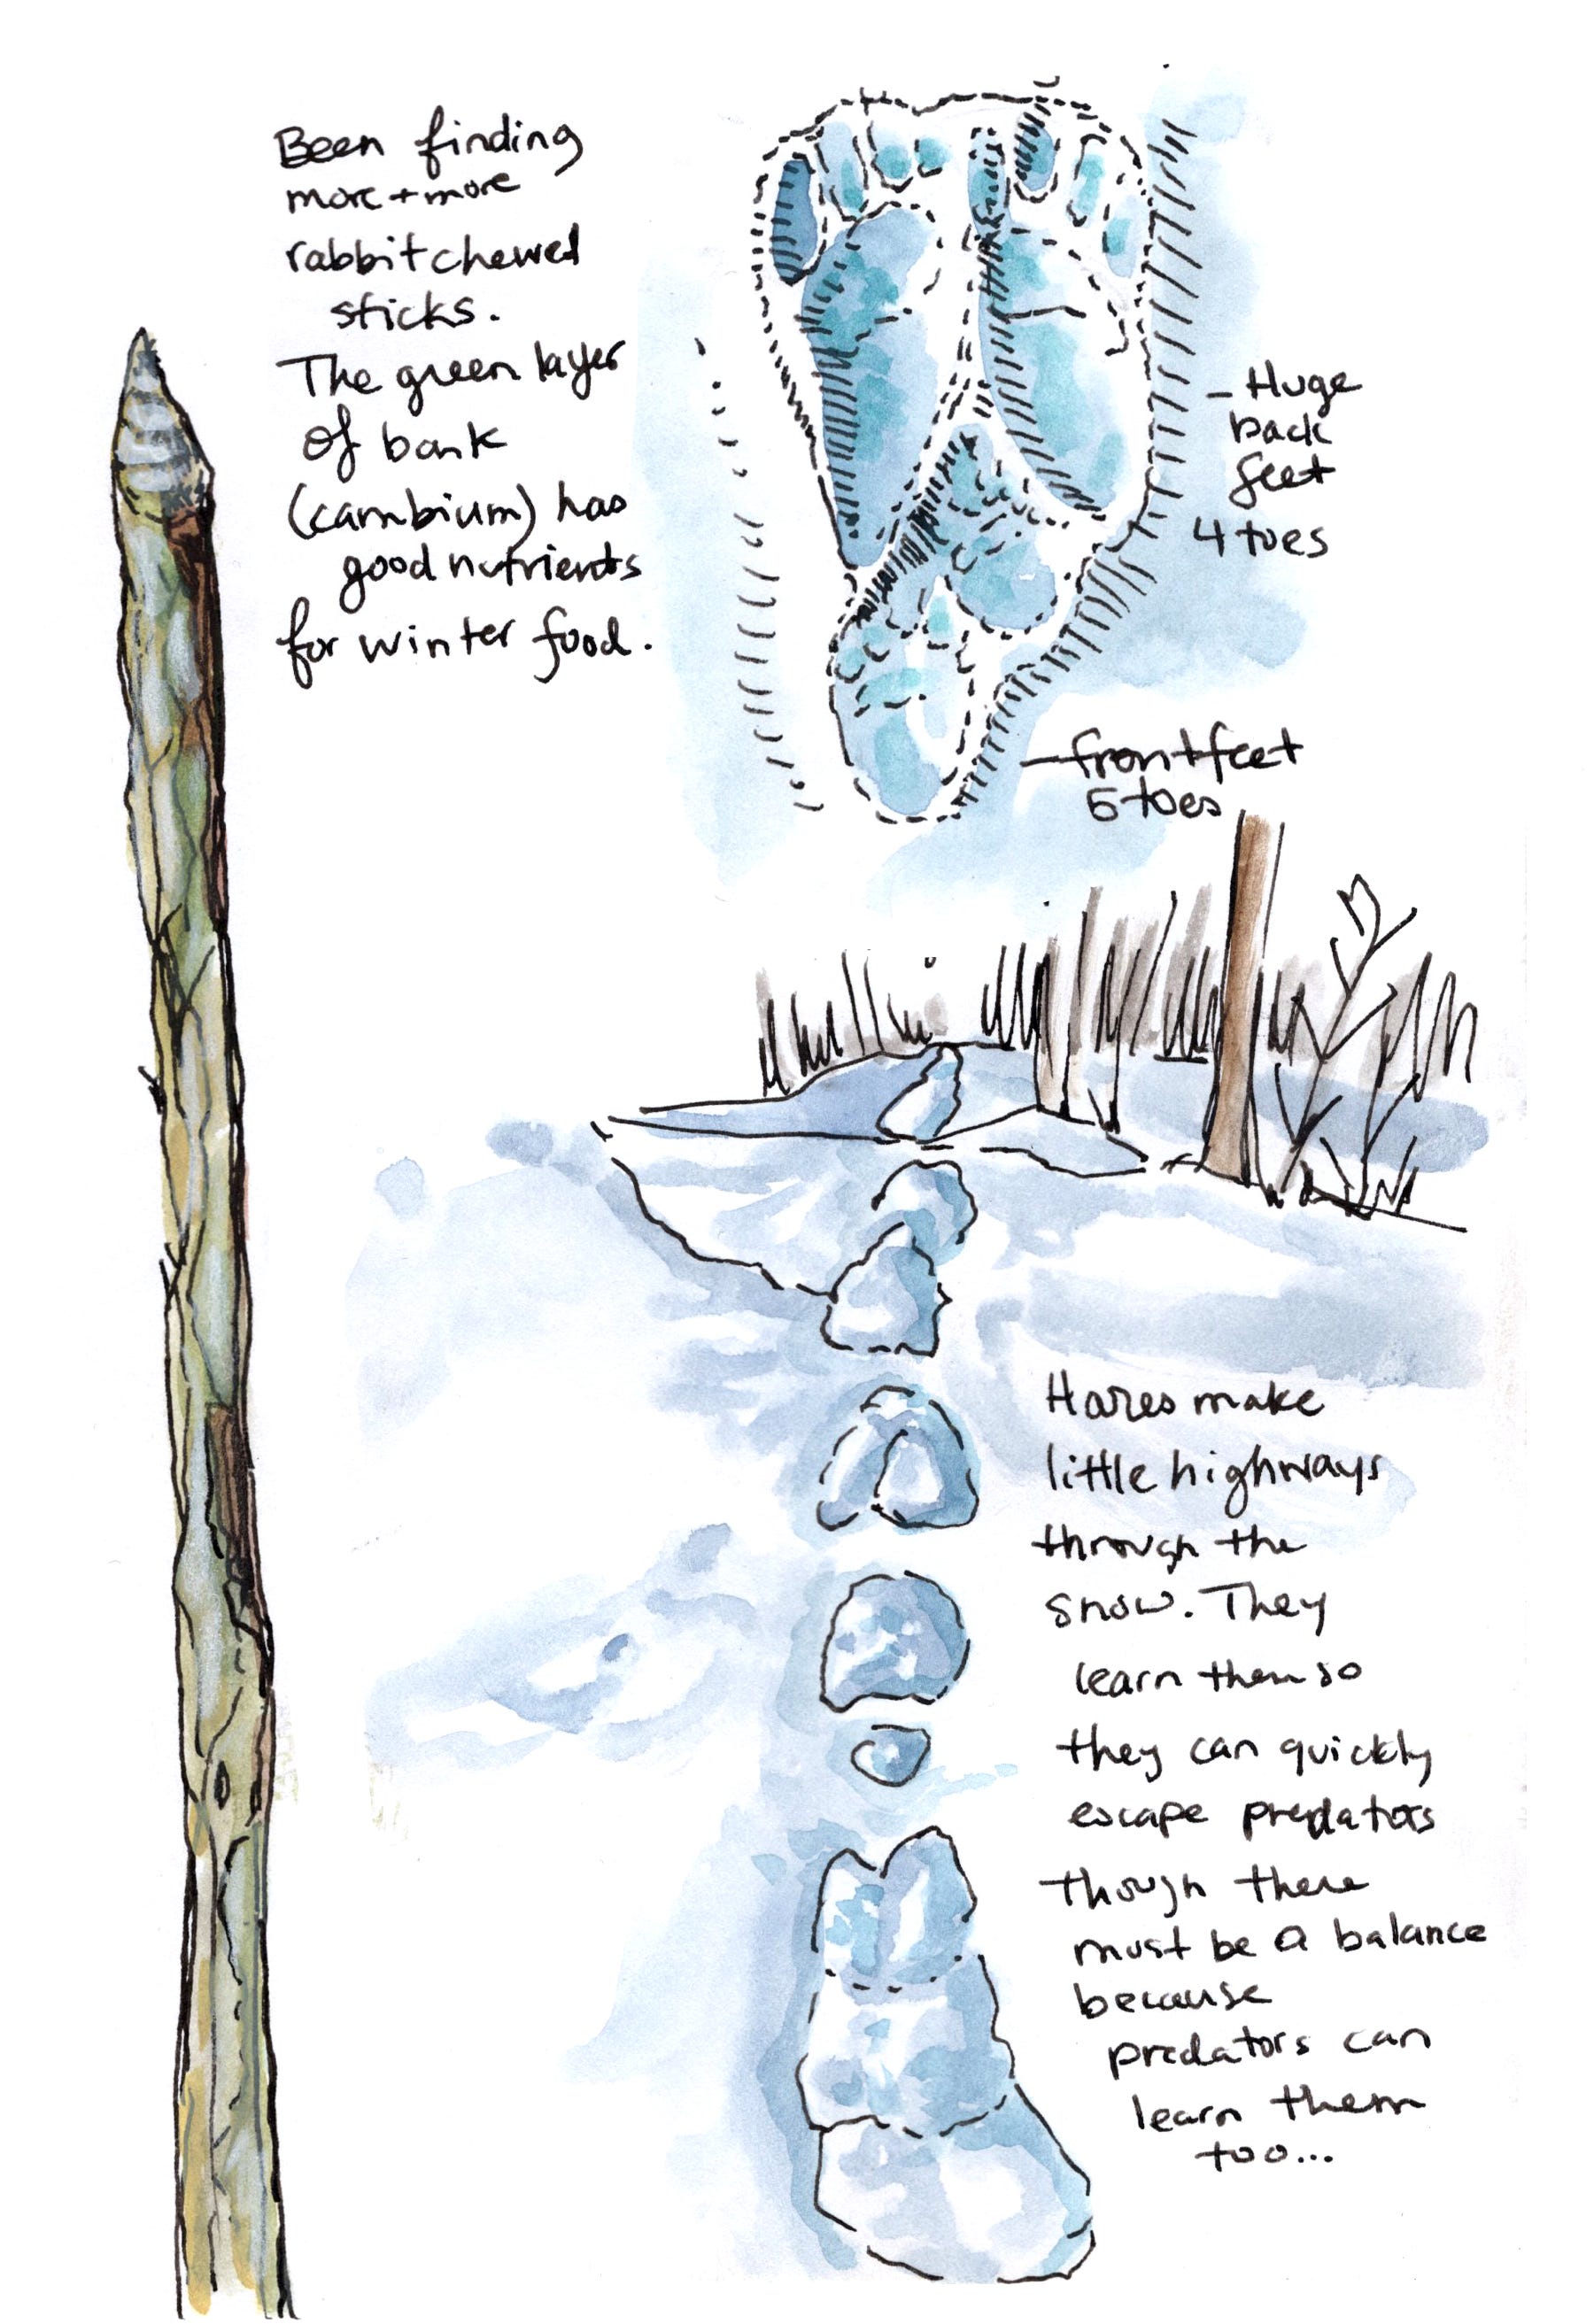 Been finding
more + more
rabbit chewed
sticks.
The green layer
of bark
(cambium) has
good nutrients
for winter food.
- Huge
back
feet
4 toes
- front feet
5 toes
Hares make
little highways
through the
snow. They
learn them so
they can quickly
escape predators
though there
must be a balance
because
predators can
learn them
too...